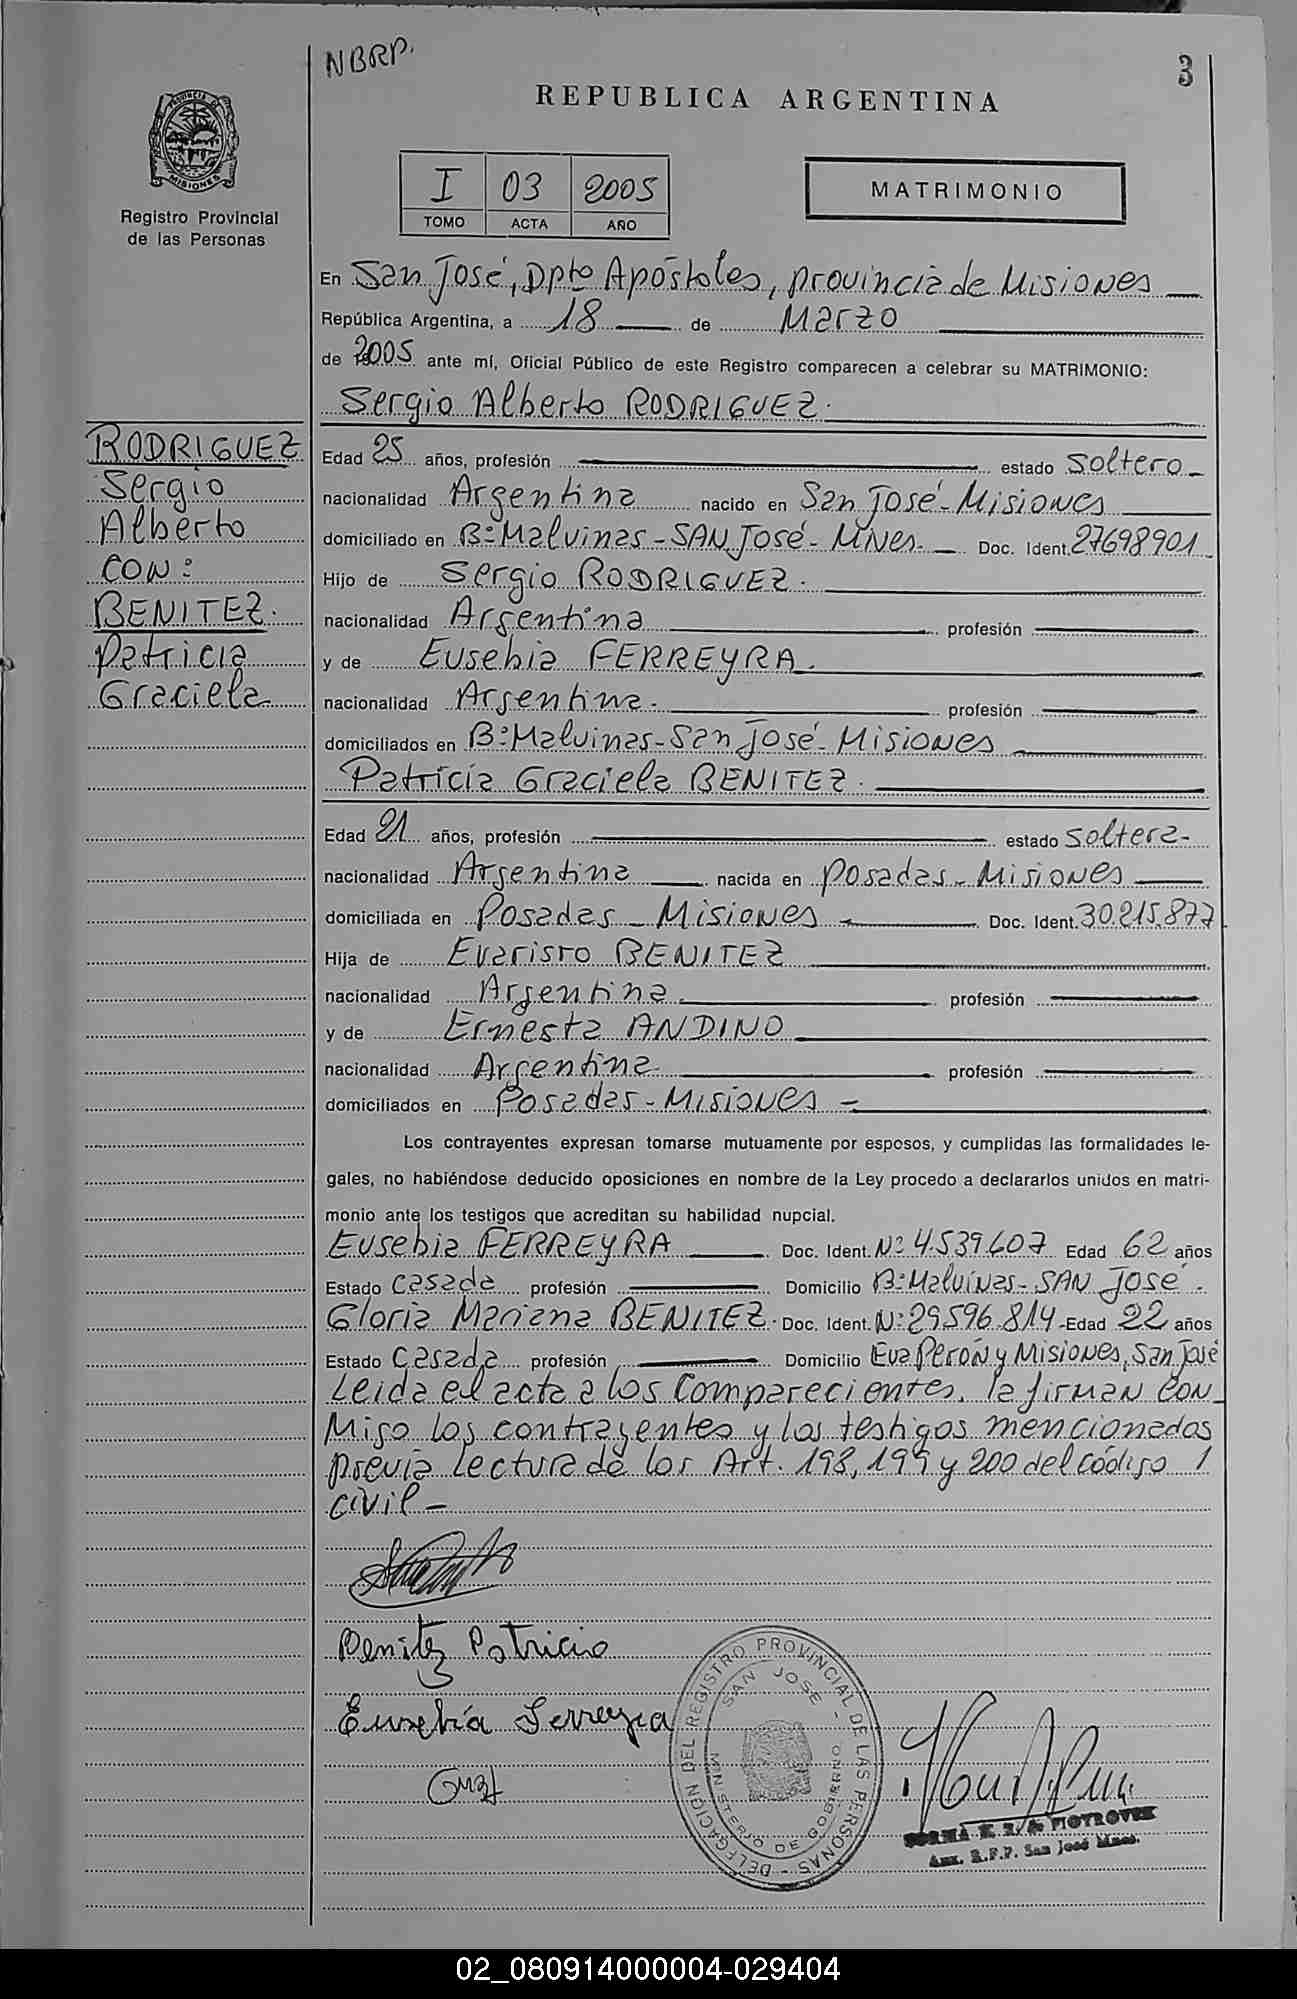 NBRP.
3
REPUBLICA ARGENTINA
PROVINCIA DE
MISIONES
Registro Provincial
de las Personas
I 03 2005
TOMO ACTA AÑO
MATRIMONIO
En San José, Dpto Apóstoles, provincia de Misiones
República Argentina, a 18 de Marzo
de 2005 ante mí, Oficial Público de este Registro comparecen a celebrar su MATRIMONIO:
Sergio Alberto RODRIGUEZ.
RODRIGUEZ
Sergio
Alberto
CON:
BENITEZ.
Patricia
Graciela
Edad 25 años, profesión estado Soltero
nacionalidad Argentina nacido en San José - Misiones
domiciliado en Bº Malvinas - SAN José - MNes. Doc. Ident. 27698901
Hijo de Sergio RODRIGUEZ.
nacionalidad Argentina profesión
y de Eusebia FERREYRA.
nacionalidad Argentina. profesión
domiciliados en Bº Malvinas - San José - Misiones
Patricia Graciela BENITEZ.
Edad 21 años, profesión estado Soltera-
nacionalidad Argentina nacida en Posadas - Misiones
domiciliada en Posadas - Misiones Doc. Ident. 30.215.877
Hija de Evaristo BENITEZ
nacionalidad Argentina. profesión
y de Ernesta ANDINO
nacionalidad Argentina profesión
domiciliados en Posadas - Misiones -
Los contrayentes expresan tomarse mutuamente por esposos, y cumplidas las formalidades le-
gales, no habiéndose deducido oposiciones en nombre de la Ley procedo a declararlos unidos en matri-
monio ante los testigos que acreditan su habilidad nupcial.
Eusebia FERREYRA Doc. Ident. Nº 4.539.607 Edad 62 años
Estado Casada profesión Domicilio Bº Malvinas - SAN José.
Gloria Mariana BENITEZ. Doc. Ident. Nº 29.596.814 - Edad 22 años
Estado Casada profesión Domicilio Eva Perón y Misiones, San José
Leida el acta a los Comparecientes, la firman CON
Migo los contrayentes y los testigos mencionados
previa lectura de los Art. 198, 199 y 200 del código
civil -
Benitez Patricia
Eusebia Ferreyra
DELEGACIÓN DEL REGISTRO PROVINCIAL DE LAS PERSONAS -
SAN JOSE -
MINISTERIO DE GOBIERNO
NORMA de PIOTROVSK
Aux. R.P.P. San José Mnes.
02_080914000004-029404